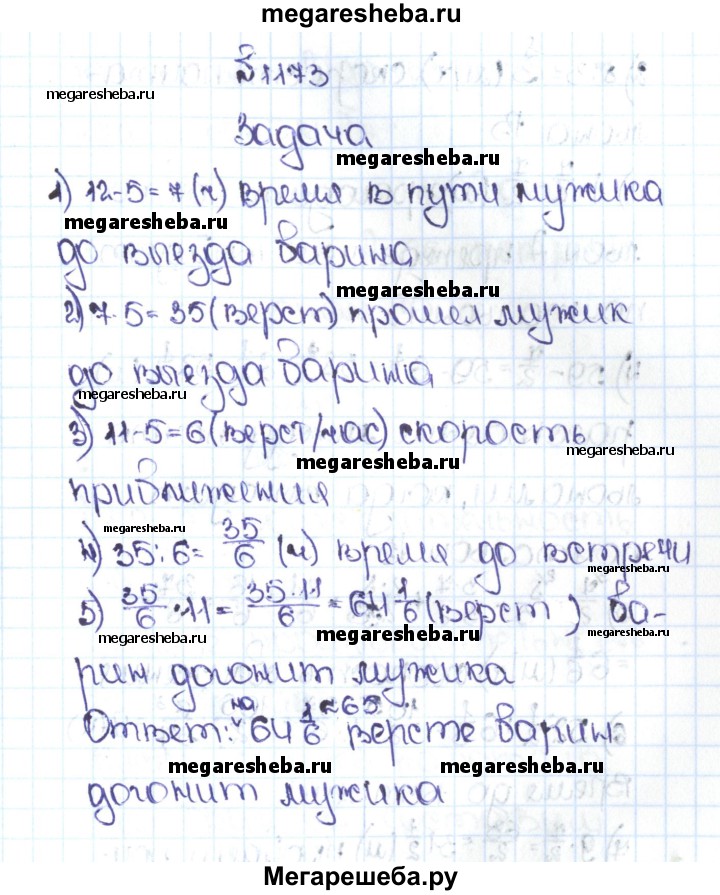 megaresheba.ru
№1173
megaresheba.ru
Задача
megaresheba.ru
1) 12-5=7 (ч) время в пути мужика
megaresheba.ru
до выезда барина
megaresheba.ru
2) 7·5=35 (верст) прошел мужик
до выезда барина
megaresheba.ru
3) 11-5=6 (верст/час) скорость
megaresheba.ru
megaresheba.ru
приближения
megaresheba.ru
4) 35:6= 35/6 (ч) время до встречи
megaresheba.ru
5) 35/6 · 11 = 35·11/6 = 64 1/6 (верст) ба-
megaresheba.ru
megaresheba.ru
megaresheba.ru
рин догонит мужика
Ответ: на 64 1/6 ≈ 65 версте барин
megaresheba.ru
megaresheba.ru
догонит мужика
Мегарешеба.ру